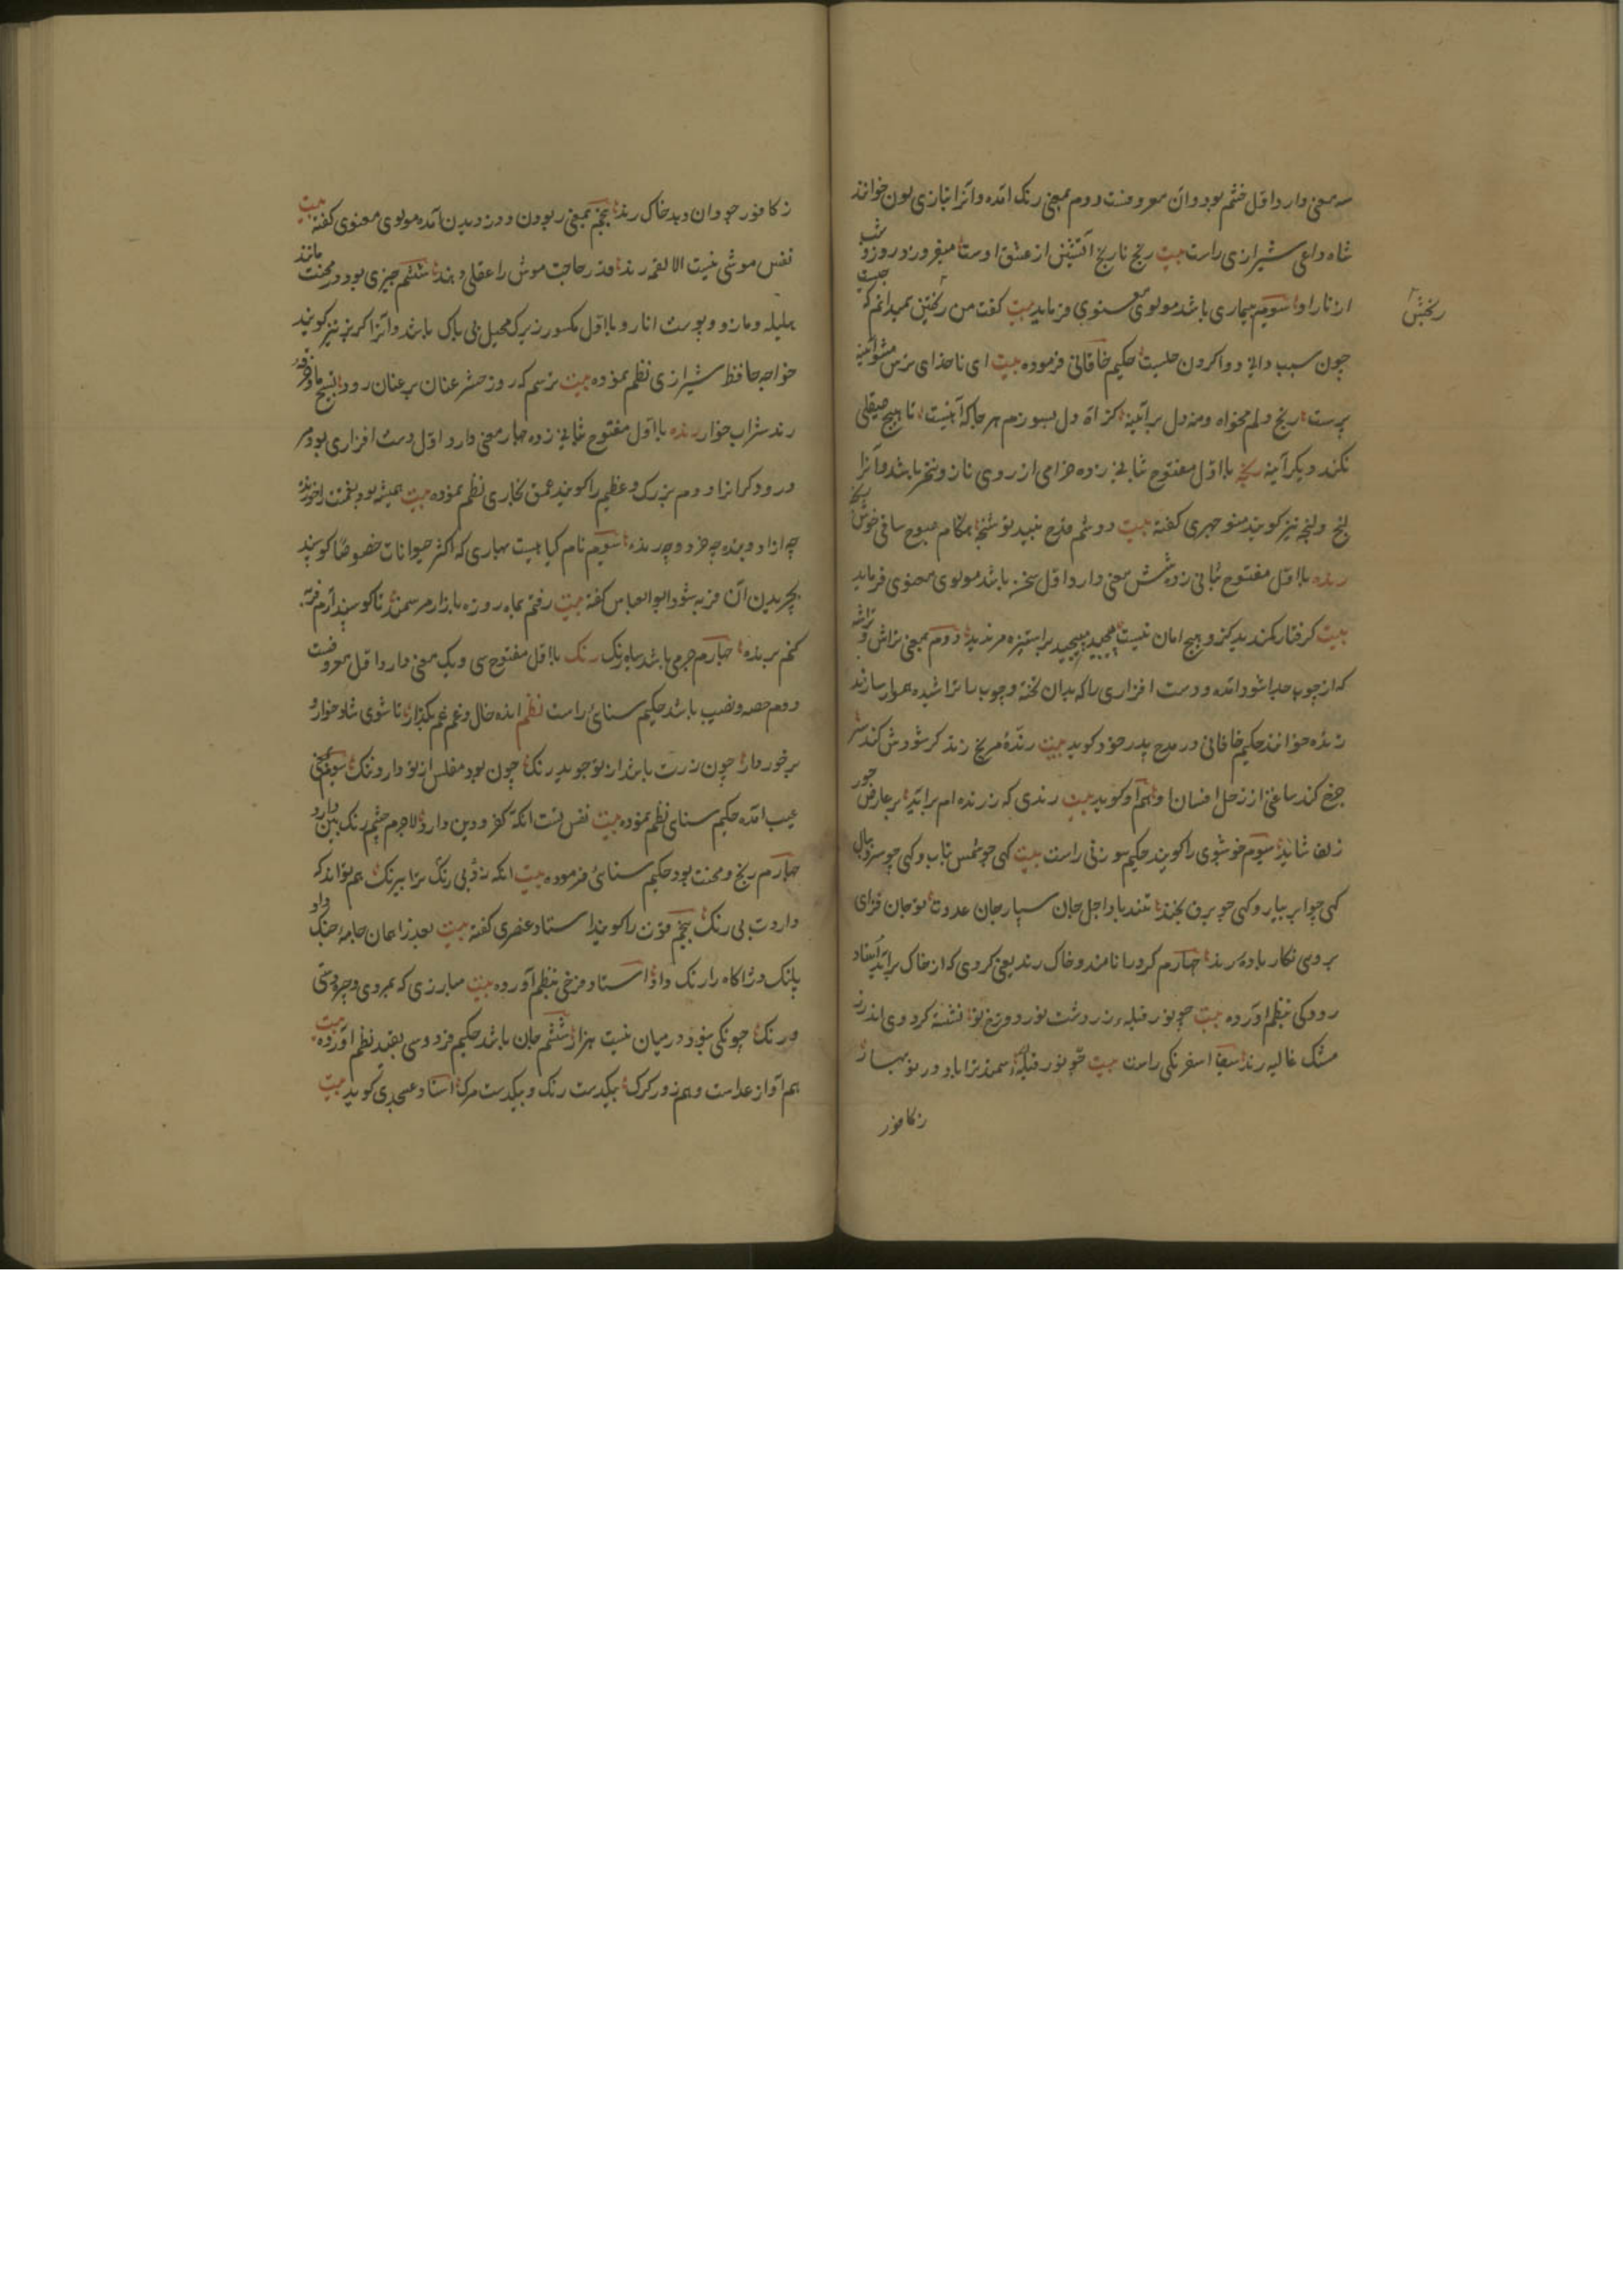 سه معنی دارد اول خشم بود و آن معروفست دوم بمعنی رنک امده و آنرا بتازی لون خوانند
شاه داعی شیرازی راست بیت رنج نارنج آتشین از عشق اوست میفروزد روز و شب
از نار او سویم بیماری باشد مولوی معنوی فرماید بیت کفت من رنجش نمیدانم که چیست
رنجش
چون سبب دانی دوا کردن حکیم خاقانی فرموده بیت ای ناخدای ترس مشو آینه
پرست رنج دلم مخواه و منه دل بر آینه کز آه دل بسوزم هر جا که آینیست تا هیچ صیقلی
نکند دیکر آینه رنجه با اول مفتوح بثانی زده خرامی از روی ناز و باشد و آنرا
لنج و لنجه نیز کویند منوچهری کفته بیت دوشم قدح نبید نوشنجه هنکام صبوح ساقی خوش
رنده با اول مفتوح بثانی زده شش معنی دارد اول سخن باشد مولوی معنوی فرماید
بیت کرفتار کمندید کزو هیچ امان نیست مپیچید مپیچید بر استیزه مرندید دوم بمعنی تراش و تراشه
که از چوب جدا شود امده و دست افزاری را که بدان تخته و چوب را تراشیده هموار سازند
رنده خوانند حکیم خاقانی در مدح پدر خود کوید بیت رندهٔ مریخ رند کر شودش کند سر
چرخ کند ساعتی از زحل افسان او هم او کوید بیت رندی که رنده ام برآید بر عارض حور
زلف شاید سیوم خوشبوی را کویند حکیم سوزنی راست بیت کهی چو شمس بتاب و کهی چو سرو ببال
کهی چو ابر ببار و کهی چو برق بخند تند باد اجل جان سپار جان عدوت تو جان فزای
بروی نکار باده برند چهارم کرد را نامند و خاک رند یعنی کردی که از خاک برآید استاد
رودکی بنظم آورده بیت چو نور قبله زردشت نور دو رخ تو نشسته کرد وی اندر ز
مشک غالیه رند سیف اسفرنکی راست بیت چو نور قبله سمند ترا باد در نوبهار
ز کافور
ز کافور جودان دید خاک رند پنجم بمعنی ربودن و دزدیدن آمده مولوی معنوی کفته بیت
نفس موشی نیست الا لقمه رند قدر حاجت موش را عقلی دهند ششم چیزی بود در محنت مانند
هلیله و مازو و پوست انار و با اول مکسور زیرک محیل بی باک باشد و آنرا کربز نیز کویند
خواجه حافظ شیرازی نظم نموده بیت ترسم که روز حشر عنان بر عنان رود تسبیح ما و خرقه
رند شراب خوار رنده با اول مفتوح بثانی زده چهار معنی دارد اول دست افزاری بود مر
درودکرانرا دوم بزرک و عظیم را کویند عمعق بخاری نظم نموده بیت همیشه بود بنعمت
چه آزاد و بنده چه خرد و چه رنده سیوم نام کیاهیست بهاری که اکثر حیوانات خصوصا کوسپند
بچریدن آن فربه شود ابوالعباس کفته بیت رفتم بماه روزه ببازار مرسمنده تا کوسپند آرم فربه
کنم برنده چهارم چرمی باشد سیاه رنک رنک با اول مفتوح سی و یک معنی دارد اول معروفست
دوم حصه و نصیب باشد حکیم سنائی راست نظم انده خال و غم عم بکذار تا شوی شاد خوار و
برخوردار چون زرت باشد از تو جوید رنک چون بود مفلس از تو دارد ننک سیوم بمعنی
عیب امده حکیم سنائی نظم نموده بیت نفس تست انکه کفر و دین دارد لاجرم چشم رنک بین دارد
چهارم رنج و محنت بود حکیم سنائی فرموده بیت انکه زد بی رنک ترا بیرنک هم تواند که
داردت بی رنک پنجم قوت را کویند استاد عنصری کفته بیت بعد زاهان جامه جنک داد
پلنک دژاکاه را رنک داد استاد فرخی بنظم آورده بیت مبارزی که بمردی و چیردستی
و رنک چو یکی نبود در میان نیست هزار ششم جان باشد حکیم فردوسی بقید نظم آورده بیت
هم آواز عداست و هم زور کرک بیکدست رنک و بیکدست مرک استاد عسجدی کوید بیت